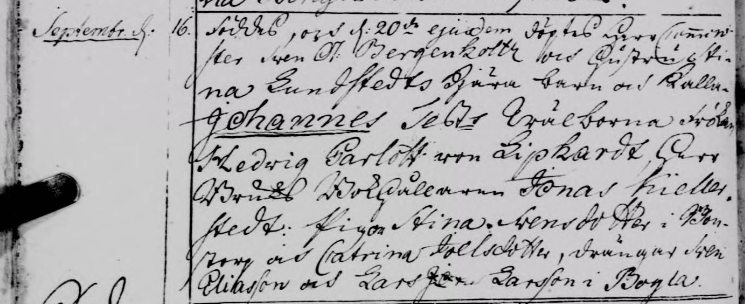 Septembr. d: 16. föddes, och d: 20de ejusdem döptes Herr Comini-
ster Sven O: Bergenholtz och Hustru Christi-
na Lundstedts Kjära barn och Kalla-
Johannes Test: Wälborna Fröken
Hedwig Carlott von Liphardt, Herr
Bruks Bokhållaren Jonas Kieller-
stedt: Pigor Stina Svensdotter i Bon-
torp och Catrina Joelsdotter, drängar Sven
Eliasson och Lars Larsson i Bogla.